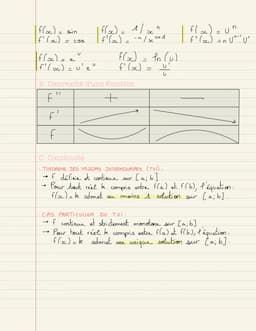 f(x) = sin f(x) = 1/x^n f(x) = U^n
f'(x) = cos f'(x) = -n/x^n+1 f'(x) = n U^n-1 U'
f(x) = e^u f(x) = ln(u)
f'(x) = u' e^u f'(x) = u'/u
B. Convexité d'une fonction
f'' + -
f'
f
C. Continuité
THEOREME DES VALEURS INTERMEDIAIRES (TVI):
→ f définie et continue sur [a;b]
→ Pour tout réel k compris entre f(a) et f(b), l'équation
f(x)=k admet au moins 1 solution sur [a;b].
CAS PARTICULIER DU TVI:
→ f continue et strictement monotone sur [a;b].
→ Pour tout réel k compris entre f(a) et f(b), l'équation
f(x)=k admet une unique solution sur [a;b].